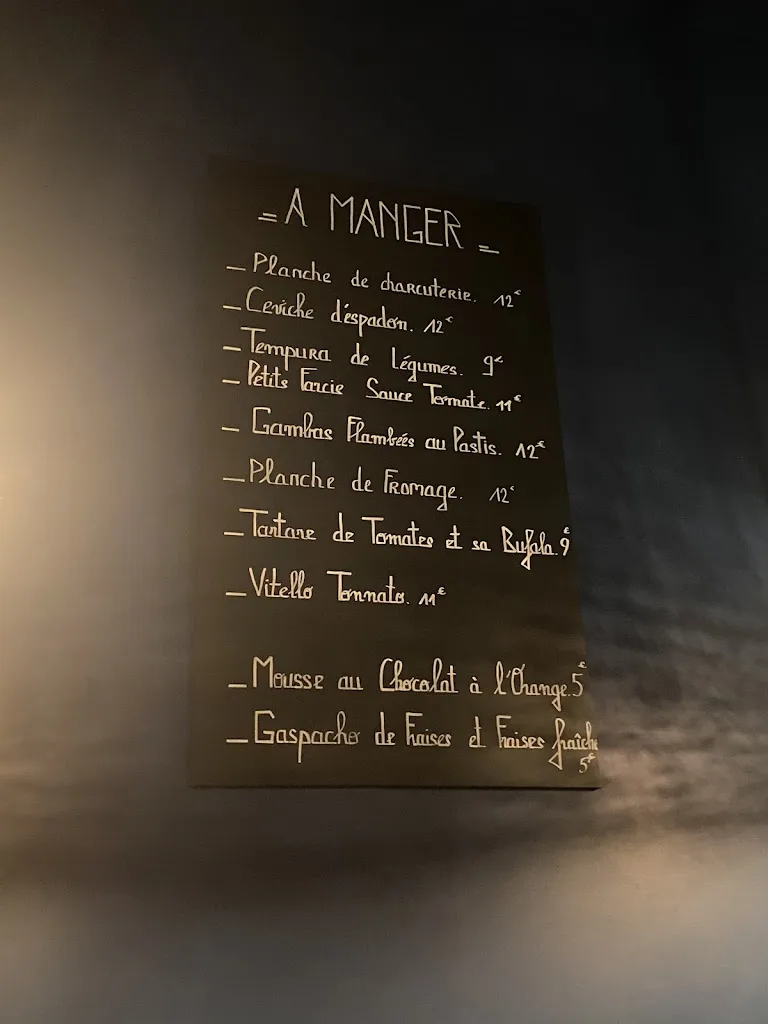 = A MANGER =
_ Planche de charcuterie. 12€
_ Ceviche d'éspadon. 12€
_ Tempura de Légumes. 9€
_ Petits Farcie Sauce Tomate. 11€
_ Gambas Flambéés au Pastis. 12€
_ Planche de Fromage. 12€
_ Tartare de Tomates et sa Bufala. 9€
_ Vitello Tonnato. 11€
_ Mousse au Chocolat à l'Orange. 5€
_ Gaspacho de Fraises et Fraises fraîche
5€